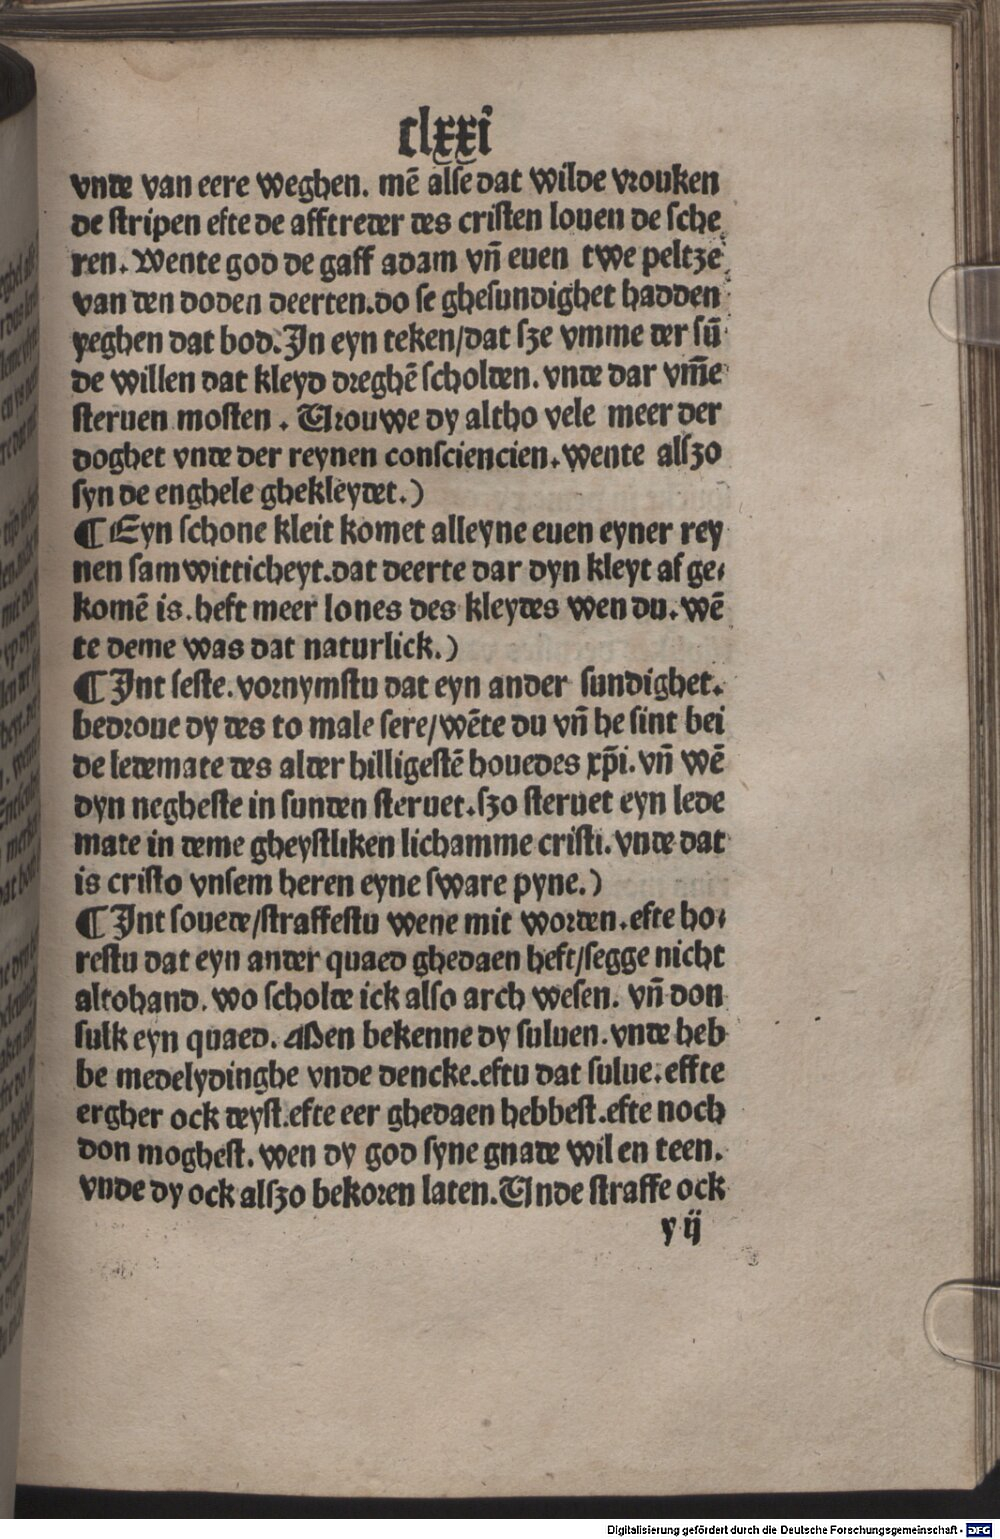 clxxi
vnde van eere weghen. mē alse dat wilde vrouken
de stripen efte de afftreder des cristen louen de sche
ren. Wente god de gaff adam vn̄ euen twe peltze
van den doden deerten.do se ghesundighet hadden
yeghen dat bod. Jn eyn teken/dat sze vmme der sū
de willen dat kleyd dreghē scholden. vnde dar vm̄e
steruen mosten . Vrouwe dy altho vele meer der
doghet vnde der reynen consciencien. wente alszo
syn de enghele ghekleydet.)
¶ Eyn schone kleit komet alleyne euen eyner rey
nen samwitticheyt.dat deerte dar dyn kleyt af ge⸗
komē is. heft meer lones des kleydes wen du. wē
te deme was dat naturlick.)
¶ Jnt seste. vornymstu dat eyn ander sundighet.
bedroue dy des to male sere/wēte du vn̄ he sint bei
de ledemate des alder hilligestē houedes xp̄i. vn̄ wē
dyn negheste in sunden steruet.szo steruet eyn lede
mate in deme gheystliken lichamme cristi. vnde dat
is cristo vnsem heren eyne sware pyne.)
¶ Jnt souede/straffestu wene mit worden. efte ho⸗
restu dat eyn ander quaed ghedaen heft/segge nicht
altohand. wo scholde ick also arch wesen. vn̄ don
sulk eyn quaed. Men bekenne dy suluen. vnde heb
be medelydinghe vnde dencke.eftu dat sulue. effte
ergher ock deyst.efte eer ghedaen hebbest.efte noch
don moghest. wen dy god syne gnade wil en teen.
vnde dy ock alszo bekoren laten. Vnde straffe ock
y ij
Digitalisierung gefördert durch die Deutsche Forschungsgemeinschaft - DFG